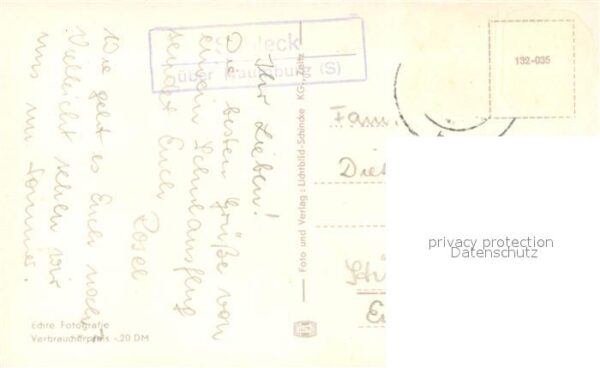 Ihr Lieben!
Die besten Grüße von
einem Schulausflug
sendet Euch
Rosel.
Wie geht es Euch noch?
Vielleicht sehen wir
uns im Sommer.
über Naumburg (S)
132-035
Fam.
Foto und Verlag: Lichtbild-Schincke KG., Zeitz
privacy protection
Datenschutz
Echte Fotografie
Verbraucherpreis -.20 DM